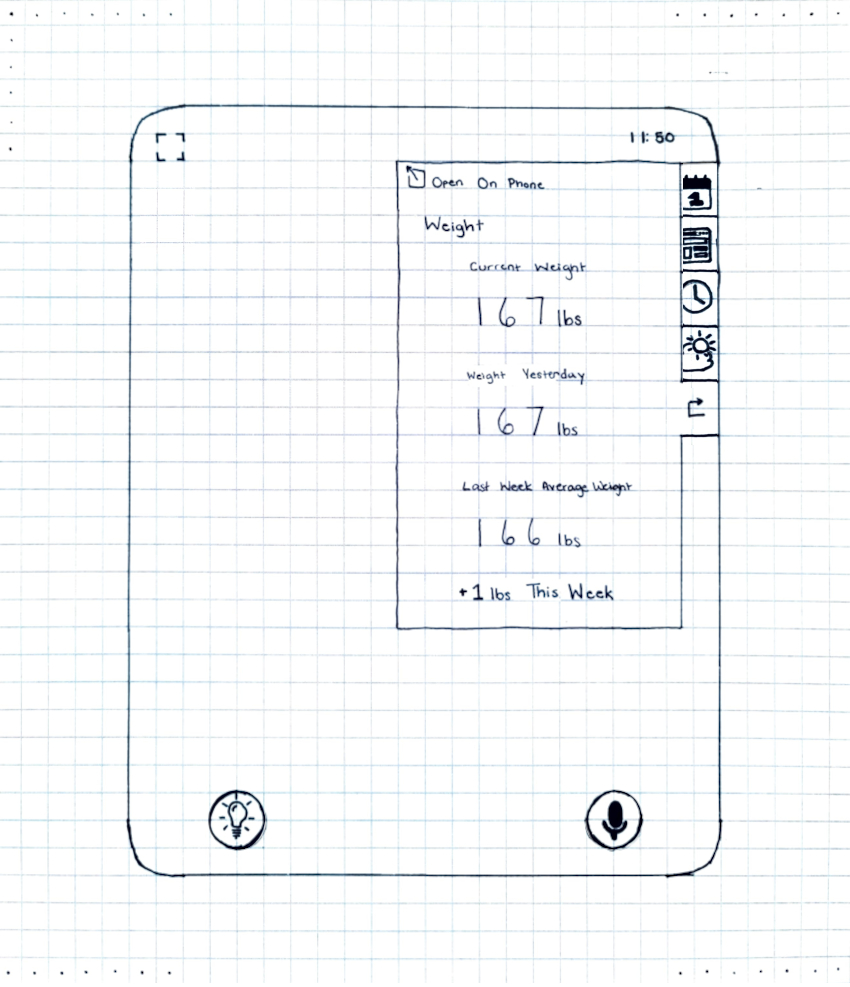 11:50
Open On Phone
Weight
Current Weight
167 lbs
Weight Yesterday
167 lbs
Last Week Average Weight
166 lbs
+1 lbs This Week